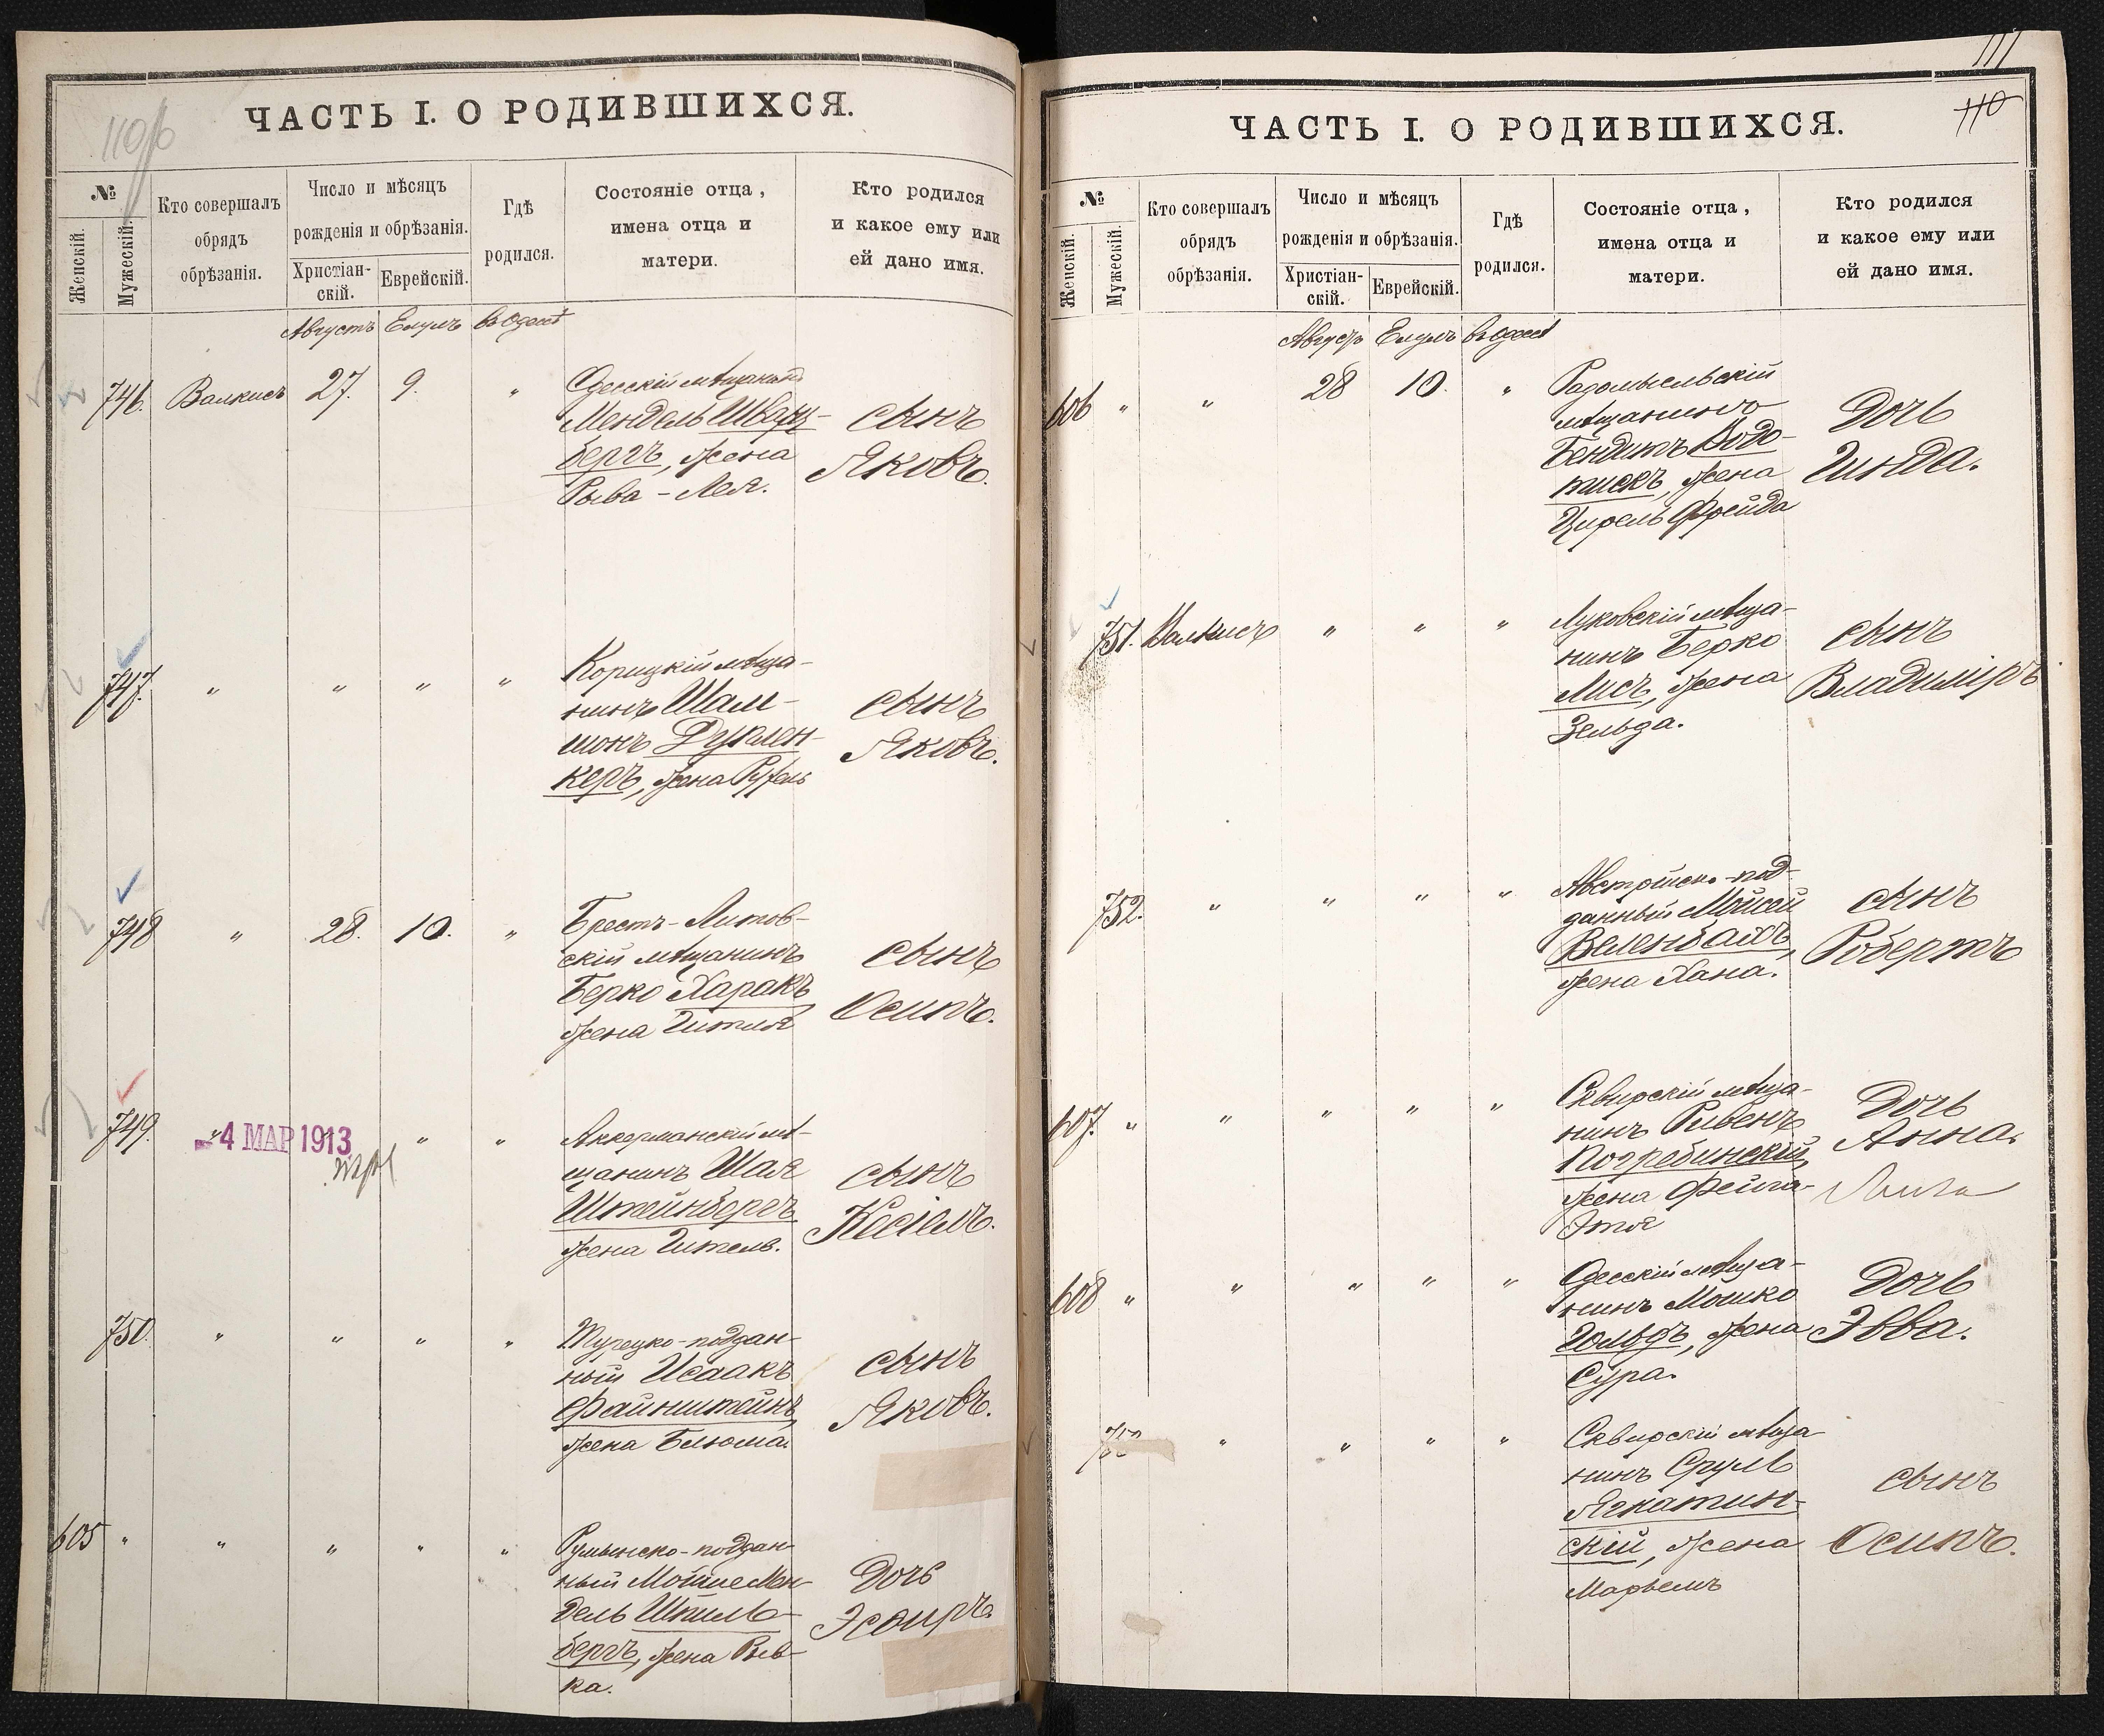 110об
ЧАСТЬ I. О РОДИВШИХСЯ.
№
Женскій.
Мужескій.
Кто совершалъ
обрядъ
обрѣзанія.
Число и мѣсяцъ
рожденія и обрѣзанія.
Христіан-
скій.
Еврейскій.
Гдѣ
родился.
Состояніе отца,
имена отца и
матери.
Кто родился
и какое ему или
ей дано имя.
Августъ Елулъ въ Одессѣ
746. Валкисъ 27. 9. "
Одесскій мѣщанинъ
Мендель Шварц-
бергъ, жена
Рыва-Лея.
сынъ
Яковъ.
747. " " " "
Корицкій мѣща-
нинъ Шам-
шонъ Дуклен-
керъ, жена
сынъ
Яковъ.
748 " 28. 10. "
Брестъ-Литов-
скій мѣщанинъ
Берко Харакъ
жена Гитля
сынъ
Осипъ.
749. " " " "
-4 МАР 1913
Аккерманскій мѣ-
щанинъ Шая
Штейнбергъ
жена Гитель.
сынъ
Кесіелъ.
750. " " " "
Турецко-поддан-
ный Исаакъ
Файнштейнъ,
жена Блюма.
сынъ
Яковъ.
605 " " " " " "
Румынско-поддан-
ный Мойше Мен-
дель Шпиль-
бергъ, жена Рив-
ка.
Дочь
Эсѳирь.
111
110
ЧАСТЬ I. О РОДИВШИХСЯ.
№
Женскій.
Мужескій.
Кто совершалъ
обрядъ
обрѣзанія.
Число и мѣсяцъ
рожденія и обрѣзанія.
Христіан-
скій.
Еврейскій.
Гдѣ
родился.
Состояніе отца,
имена отца и
матери.
Кто родился
и какое ему или
ей дано имя.
Августъ Елулъ въ Одессѣ
606 " " 28 10. "
Радомысльскій
мѣщанинъ
Бендитъ Водо-
тискъ, жена
Цирель Фрейда
Дочь
Гинда.
751. Валкисъ " " "
Луковскій мѣща-
нинъ Берко
Лисъ, жена
Зельда.
сынъ
Владиміръ
752. " " " "
Австрійско-под-
данный Мойсей
Веленбахъ,
жена Хана.
сынъ
Робертъ
607. " " " " "
Сквирскій мѣща-
нинъ Рувенъ
Погребинскій,
жена Фейга-
Этя
Дочь
Анна.
608 " " " " "
Одесскій мѣща-
нинъ Мошко
Гольдъ, жена
Сура.
Дочь
Эвва.
" " " "
Сквирскій мѣща
нинъ Сруль
Ягкатин-
скій, жена
Марьемъ
сынъ
Осипъ.